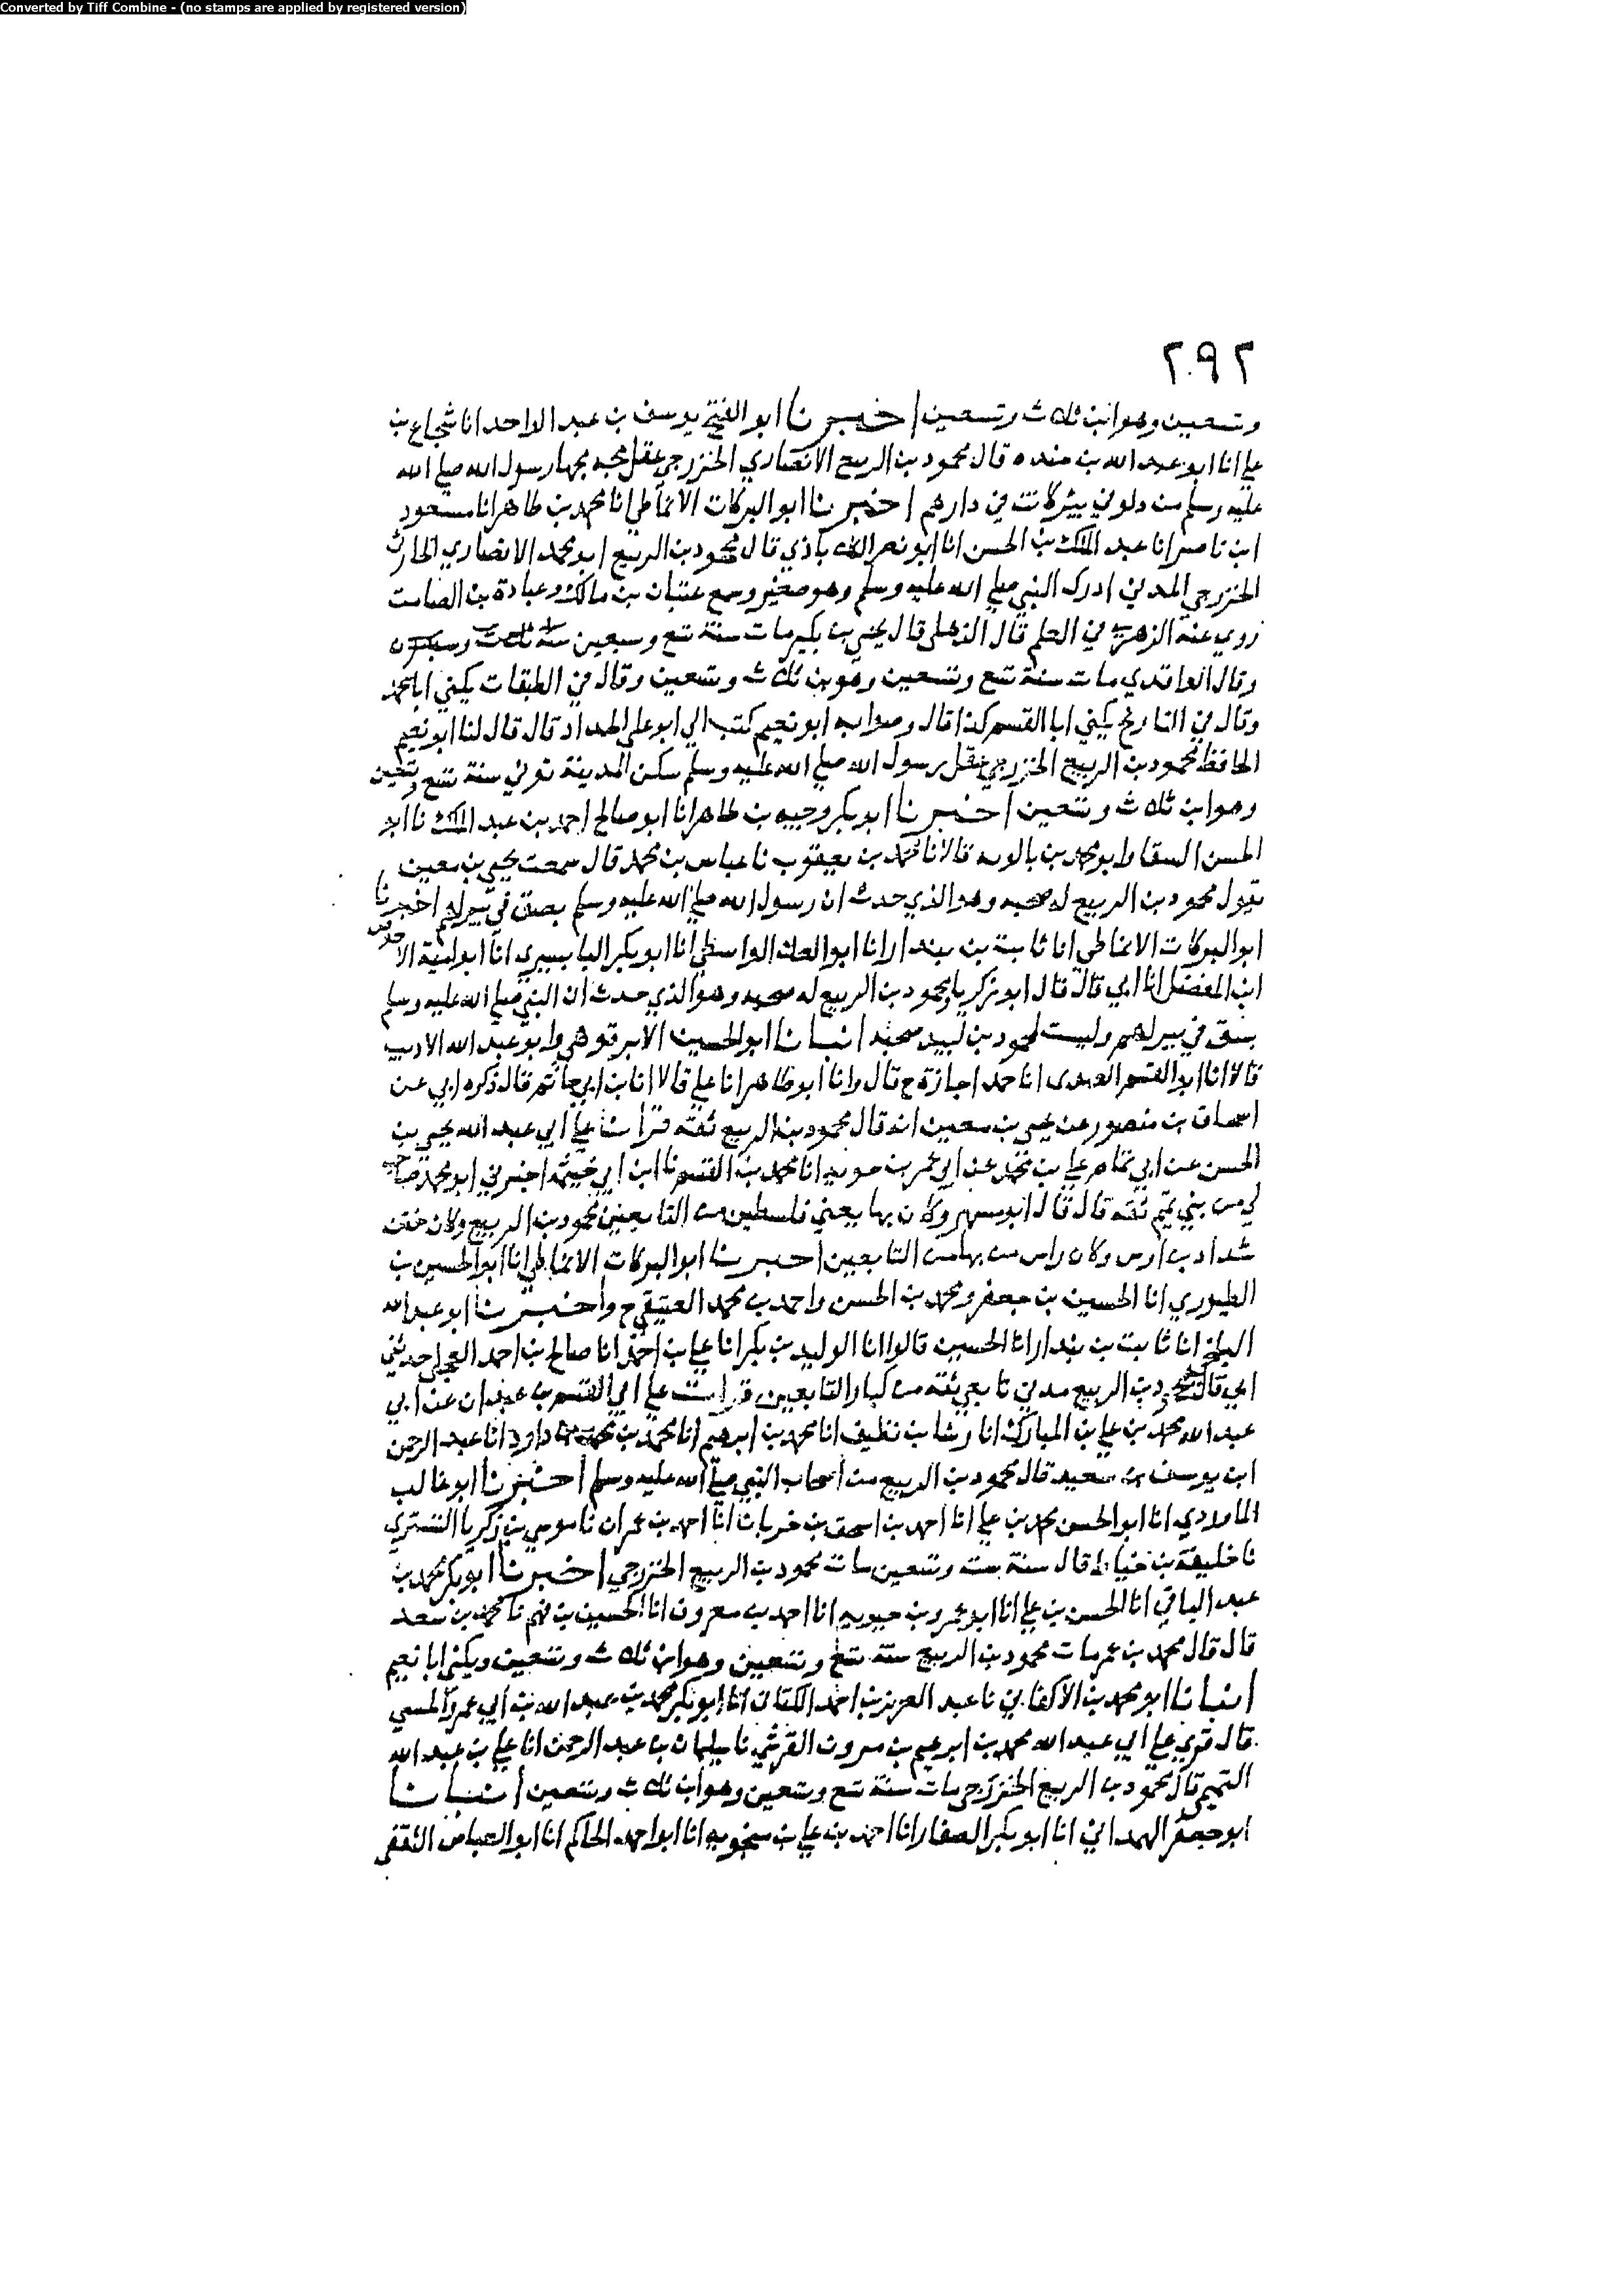 Converted by Tiff Combine - (no stamps are applied by registered version)
٢٩٢
وتسعين وهو ابن ثلاث وتسعين اخبرنا ابو الفتح يوسف بن عبد الواحد انا شجاع بن
علي انا ابو عبد الله بن منده قال محمود بن الربيع الانصاري الخزرجي عقل مجه مجها رسول الله صلى الله
عليه وسلم من دلو في بير كانت في دارهم اخبرنا ابو البركات الانماطي انا محمد بن طاهر انا مسعود
ابن ناصر انا عبد الملك بن الحسن انا ابو نصر الكلاباذي قال محمود بن الربيع ابو محمد الانصاري الحارثي
الخزرجي المدني ادرك النبي صلى الله عليه وسلم وهو صغير وسمع عتبان بن مالك وعبادة بن الصامت
روى عنه الزهري في العلم قال الذهلي قال يحيى بن بكير مات سنة تسع وسبعين سنة
وقال الواقدي مات سنة تسع وتسعين وهو بن ثلاث وتسعين وقال في الطبقات يكنى ابا محمد
وقال في التاريخ يكنى ابا القسم كذا قال وصوابه ابو نعيم كتب الي ابو علي الحداد قال قال لنا ابو نعيم
الحافظ محمود بن الربيع الخزرجي عقل رسول الله صلى الله عليه وسلم سكن المدينة توفي سنة تسع وتسعين
وهو ابن ثلاث وتسعين اخبرنا ابو بكر وجيه بن طاهر انا ابو صالح احمد بن عبد الملك نا ابو
الحسن السقا وابو محمد بن بالويه قالا نا محمد بن يعقوب نا عباس بن محمد قال سمعت يحيى بن معين
يقول محمود بن الربيع له صحبه وهو الذي حدث ان رسول الله صلى الله عليه وسلم بصق في بير لهم اخبرنا
ابو البركات الانماطي انا ثابت بن بندار انا ابو العلا الواسطي انا ابو بكر البابسيري انا ابو امية الاحوص
ابن المفضل انا ابي قال قال ابو زكريا ومحمود بن الربيع له صحبه وهو الذي حدث ان النبي صلى الله عليه وسلم
بسق في بير لهم وليست لمحمود بن لبيد صحبه انبانا ابو الحسين الابرقوهي وابو عبد الله الاديب
قالا انا ابو القسم العبدي انا حمد اجازة ح قال وانا ابو طاهر انا علي قالا انا بن ابي حاتم قال ذكره ابي عن
اسحاق بن منصور عن يحيى بن معين انه قال محمود بن الربيع ثقه قرات على ابي عبد الله يحيى بن
الحسن عن ابي تمام علي بن محمد عن ابي عمر بن حيويه انا محمد بن القسم نا ابن ابي خيثمه اخبرني ابو محمد صاحب
لي من بني تميم ثقه قال قال ابو مسهر وكان بها يعني فلسطين من التابعين محمود بن الربيع وكان ختن
شداد بن اوس وكان راس من بها من التابعين اخبرنا ابو البركات الانماطي انا ابو الحسين بن
الطيوري انا الحسين بن جعفر ومحمد بن الحسن واحمد بن محمد العتيقي ح واخبرنا ابو عبد الله
البلخي انا ثابت بن بندار انا الحسين قالوا انا الوليد بن بكر انا علي بن احمد انا صالح بن احمد العجلي حدثني
ابي قال محمود بن الربيع مدني تابعي ثقه من كبار التابعين قرات على ابي القسم بن عبدان عن ابي
عبد الله محمد بن علي بن المبارك انا رشا بن نظيف انا محمد بن ابرهيم انا محمد بن محمد بن داود انا عبد الرحمن
ابن يوسف بن سعيد قال محمود بن الربيع من اصحاب النبي صلى الله عليه وسلم اخبرنا ابو غالب
الماوردي انا ابو الحسن محمد بن علي انا احمد بن اسحق بن خربان انا احمد بن عمران نا موسى بن زكريا التستري
نا خليفة بن خياط قال سنة ست وتسعين مات محمود بن الربيع الخزرجي اخبرنا ابو بكر محمد بن
عبد الباقي انا الحسن بن علي انا ابو عمرو بن حيويه انا احمد بن معروف انا الحسين بن فهم نا محمد بن سعد
قال قال محمد بن عمر مات محمود بن الربيع سنة تسع وتسعين وهو ابن ثلاث وتسعين ويكنى ابا نعيم
انبانا ابو محمد بن الاكفاني نا عبد العزيز بن احمد الكتاني انا ابو بكر محمد بن عبد الله بن ابي عمرو
قال قري على ابي عبد الله محمد بن ابرهيم بن مروان القرشي نا سليمان بن عبد الرحمن انا علي بن عبد الله
التميمي قال محمود بن الربيع الخزرجي مات سنة تسع وتسعين وهو ابن ثلاث وتسعين انبانا
ابو جعفر الهمداني انا ابو بكر الصفار انا احمد بن علي بن منجويه انا ابو احمد الحاكم انا ابو العباس الثقفي